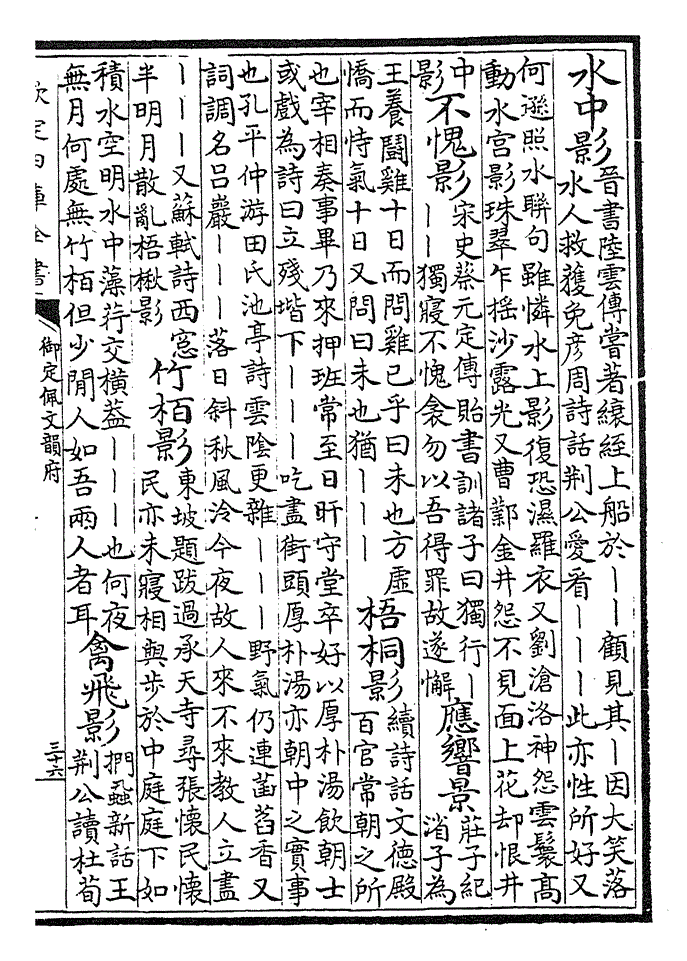 水中影
晉書陸雲傳嘗著縗絰上船於||顧見其|因大笑落
水人救獲免彦周詩話荆公愛看|||此亦性所好又
何遜照水聯句雖憐水上影復恐濕羅衣又劉滄洛神怨雲鬟高
動水宫影珠翠乍摇沙露光又曹鄴金井怨不見面上花却恨井
中
影
不愧影
宋史蔡元定傳貽書訓諸子曰獨行|
||獨寢不愧衾勿以吾得罪故遂懈
應響景
莊子紀
渻子為
王養鬬雞十日而問雞已乎曰未也方虚
憍而恃氣十日又問曰未也猶|||
梧桐影
續詩話文德殿
百官常朝之所
也宰相奏事畢乃來押班常至日旰守堂卒好以厚朴湯飲朝士
或戲為詩曰立殘堦下|||吃盡街頭厚朴湯亦朝中之實事
也孔平仲游田氏池亭詩雲陰更雜|||野氣仍連菡萏香又
詞調名吕巖|||落日斜秋風泠今夜故人來不來教人立盡
|||又蘇軾詩西窓
半明月散亂梧楸影
竹栢影
東坡題跋過承天寺尋張懷民懷
民亦未寢相與步於中庭庭下如
積水空明水中藻荇交横葢|||也何夜
無月何處無竹栢但少閒人如吾兩人者耳
禽飛影
捫蝨新話王
荆公讀杜荀
欽定四庫全書
御定佩文韻府
三十六